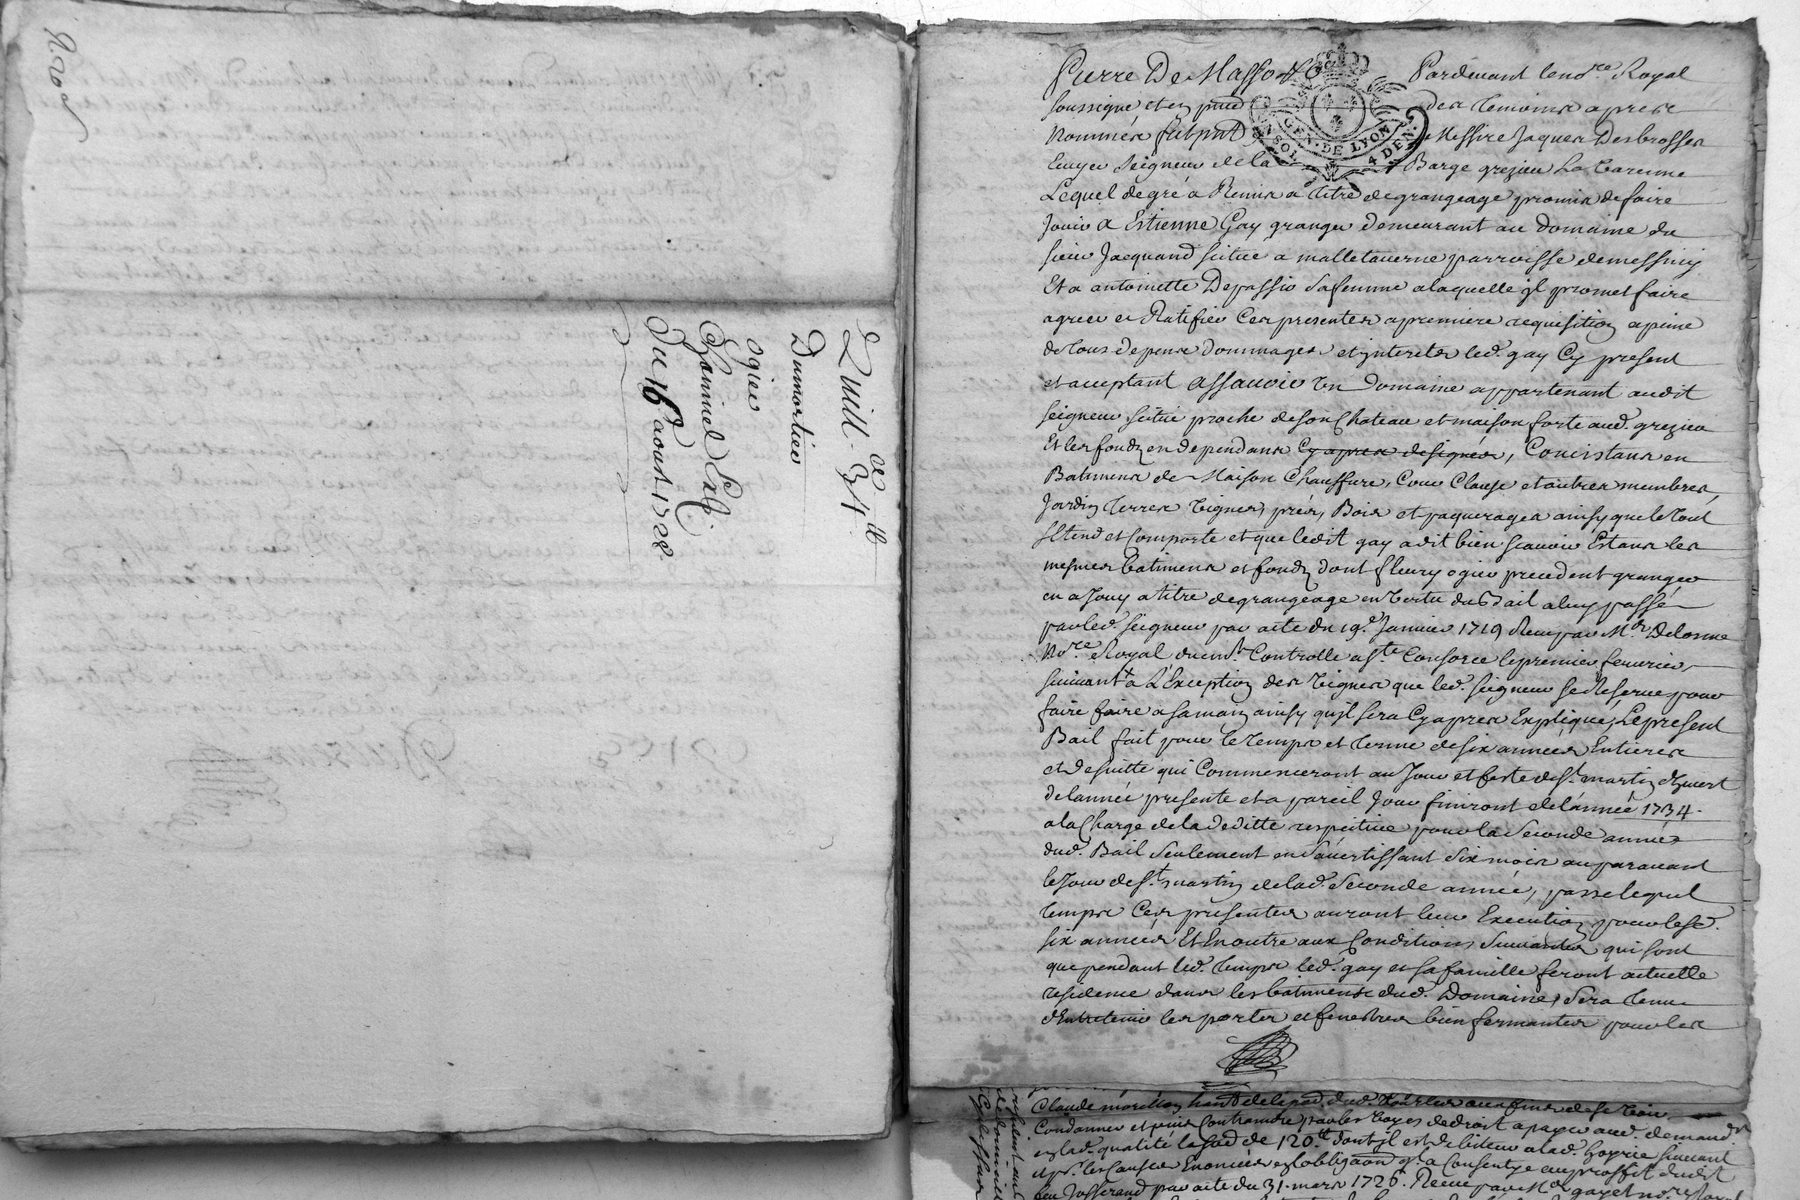 Quitt.ce 34.lt
Dumortier
ogier
Du 16 aoust 1728
Pardevant le no.re Royal
soussigné et en pnce
GEN. DE LYON
1 SOL. 4 DEN.
des temoins apres
Nommés fut pnt Messire Jaques Desbrosses
Ecuyer Seigneur de la Barge grezieu La Varenne
Lequel de gré a Remis a titre de grangeage promis de faire
Jouir a Estienne Gay granger demeurant au domaine du
sieur Jacquand situé a malletaverne parroisse de messimy
Et a antoinette Depassio sa femme a laquelle jl promet faire
agreer et Ratifier Ces presentes a premiere requisition a peine
de tous depens dommages et jnterets led. gay Cy present
et acceptant assavoir Un Domaine appartenant audit
seigneur situé proche de son Chateau et maison forte aud. grezieu
Et les fondz en dependans Cy apres designés, Concistans en
Batimens de Maison Chauffure, Cour Clause et autres membres,
Jardin Terres Vignes, prés, Bois et paquerages ainsy que le tout
s'Etend et Comporte et que ledit gay a dit bien scavoir Estans les
mesmes batimens et fondz dont fleury ogier precedent granger
en a Jouy a titre de grangeage en Vertu du Bail a luy passé
par led. seigneur par acte du 19.e Janvier 1719 Receu par M.e Delorme
No.re Royal Controllé a S.te Consorce le premier fevrier
suivant a L'Exception des Vignes que led. seigneur se Reserve pour
faire faire a sa main ainsy qu'jl sera Cy apres Expliqué, Le present
Bail fait pour le temps et terme de six années Entieres
et de suitte qui Commenceront au Jour et feste de S.t martin d'hyvert
de l'année presente et a pareil Jour finiront de l'année 1734.
a la Charge de la deditte respective pour la seconde année
dud. Bail seulement en s'avertissant six mois auparavant
le Jour de S.t martin de lad. seconde année, passé lequel
temps Ces presentes auront leur Execution pour lesd.
six années Et En outre aux Conditions suivantes qui sont
que pendant led. temps led. gay et sa famille feront actuelle
residence dans les batimens dud. Domaine, sera tenu
d'Entretenir les portes et fenestres bien fermantes pour les
Condamner et par les Voyes de droit a payer aud. demand.r
esd. qualité la so͞e de 120.lt dont jl est debiteur
par acte du 31. mars 1726.